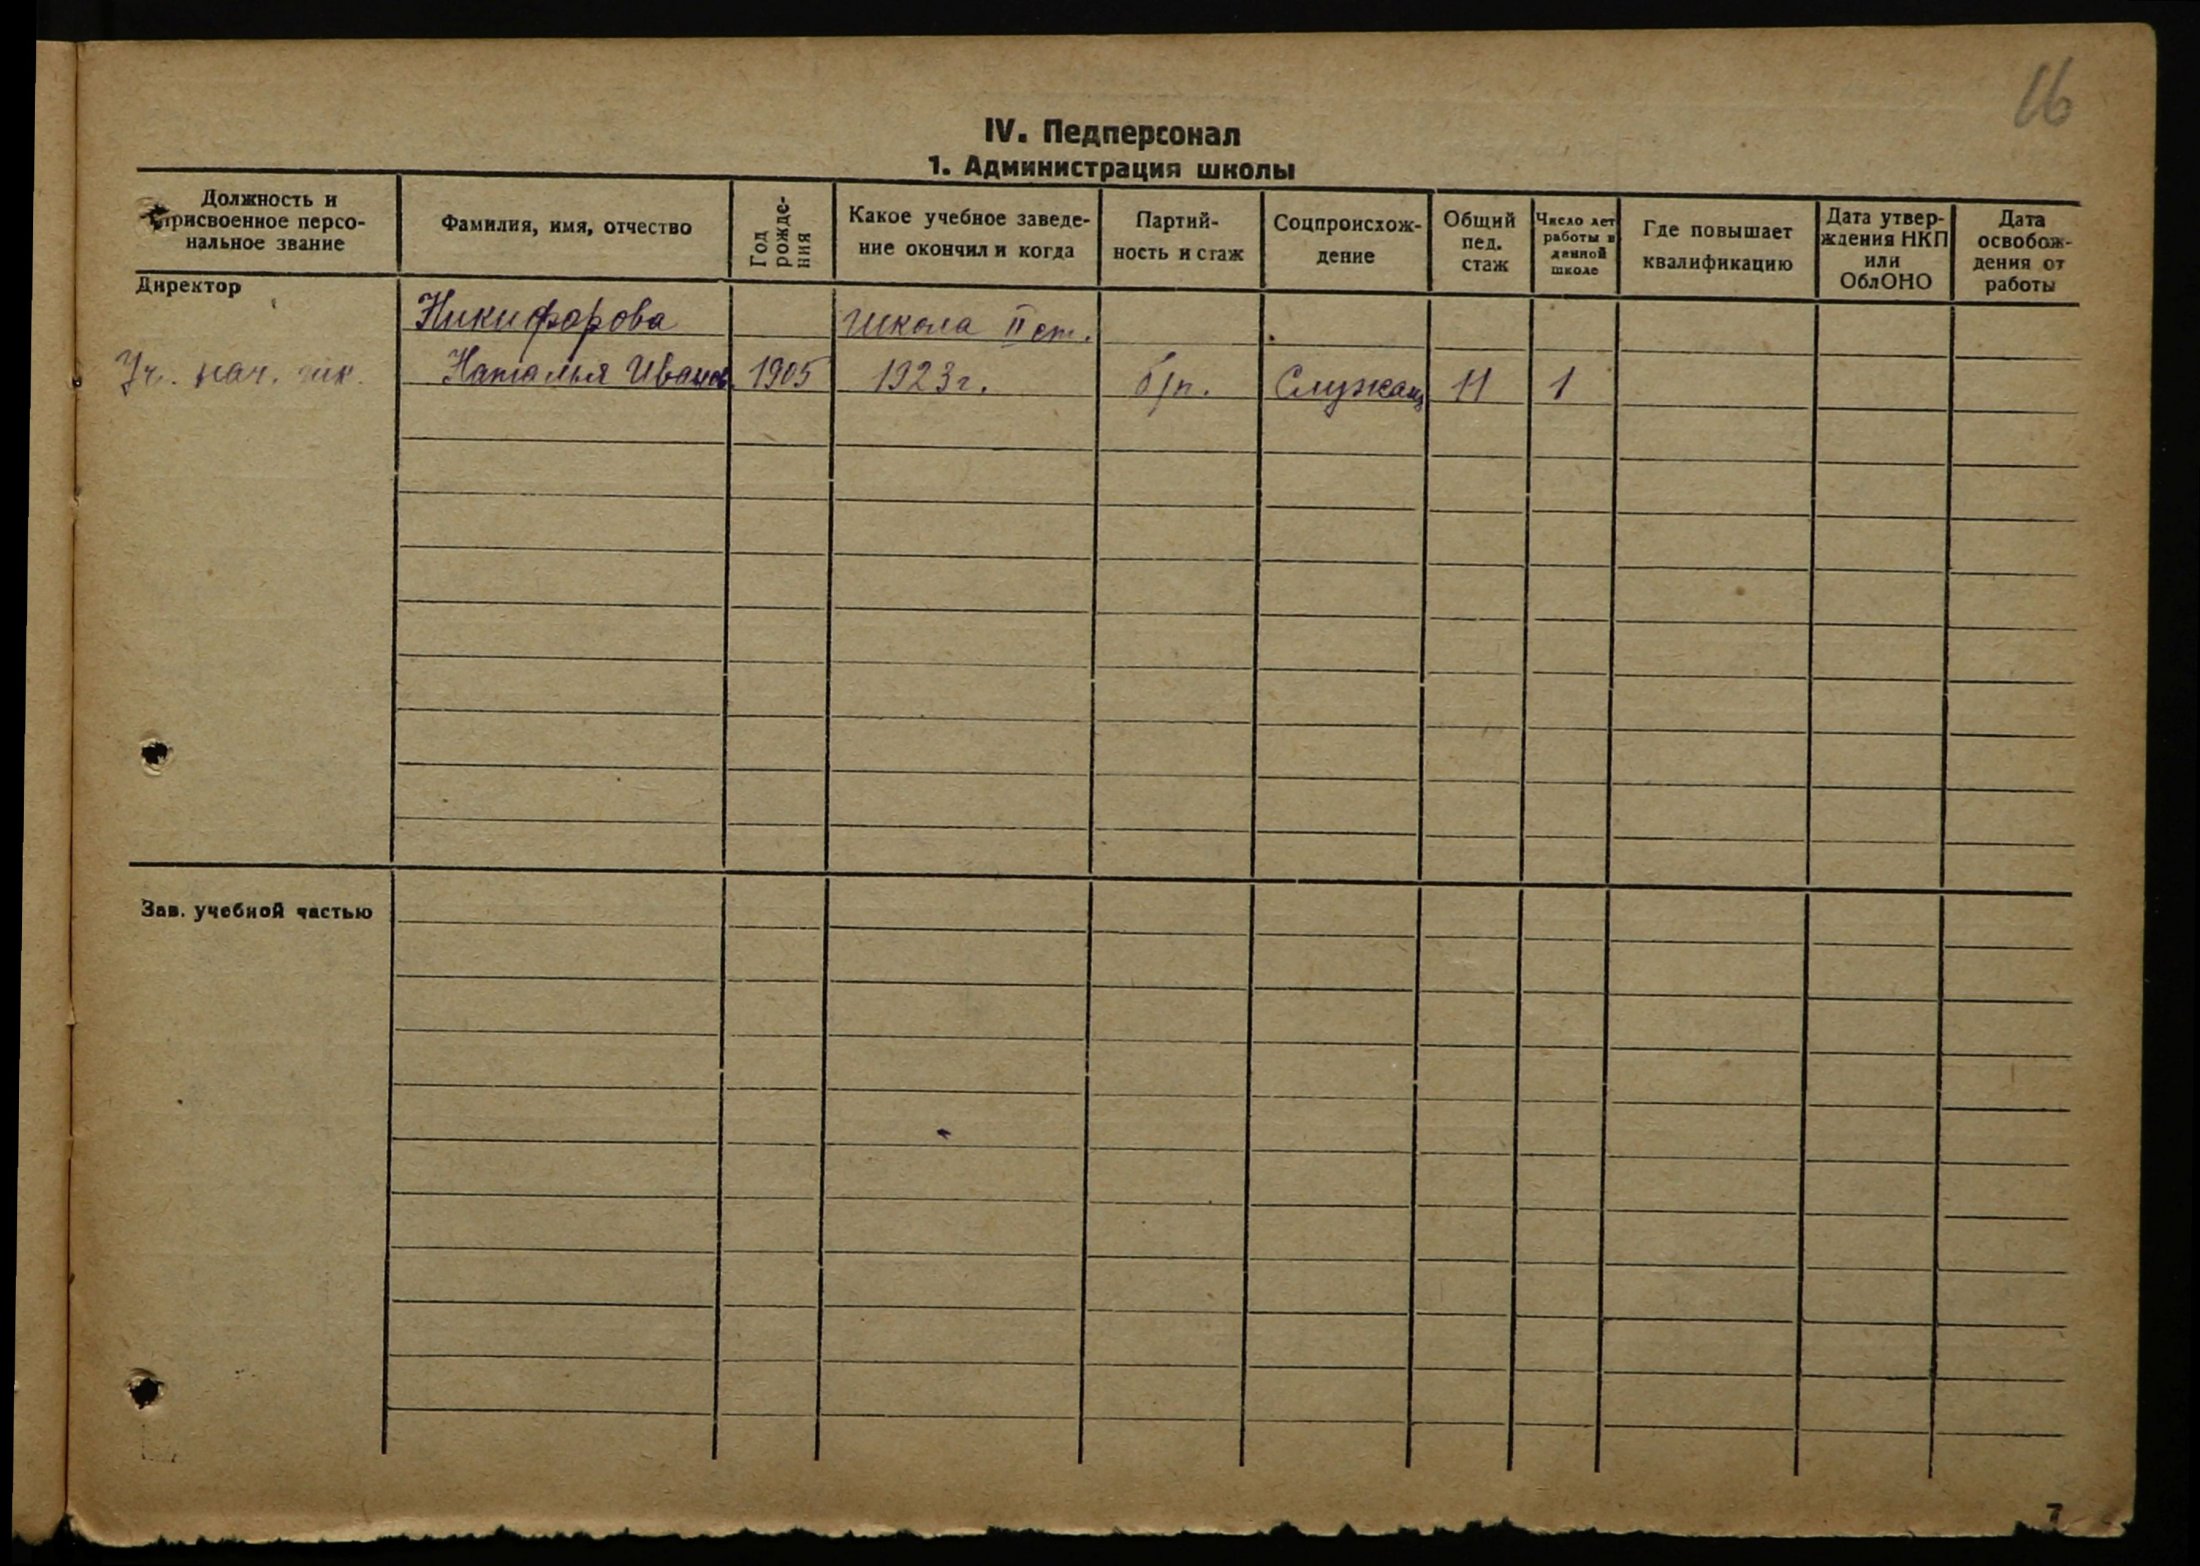 16
IV. Педперсонал
1. Администрация школы
Должность и
присвоенное персо-
нальное звание
Фамилия, имя, отчество
Год
рожде-
ния
Какое учебное заведе-
ние окончил и когда
Партий-
ность и стаж
Соцпроисхож-
дение
Общий
пед.
стаж
Число лет
работы в
данной
школе
Где повышает
квалификацию
Дата утвер-
ждения НКП
или
ОблОНО
Дата
освобож-
дения от
работы
Директор
Никифорова
школа II ст.
Уч. нач. шк.
Наталья Иванов.
1905
1923г.
б/п.
Служащ
11
1
Зав. учебной частью
7